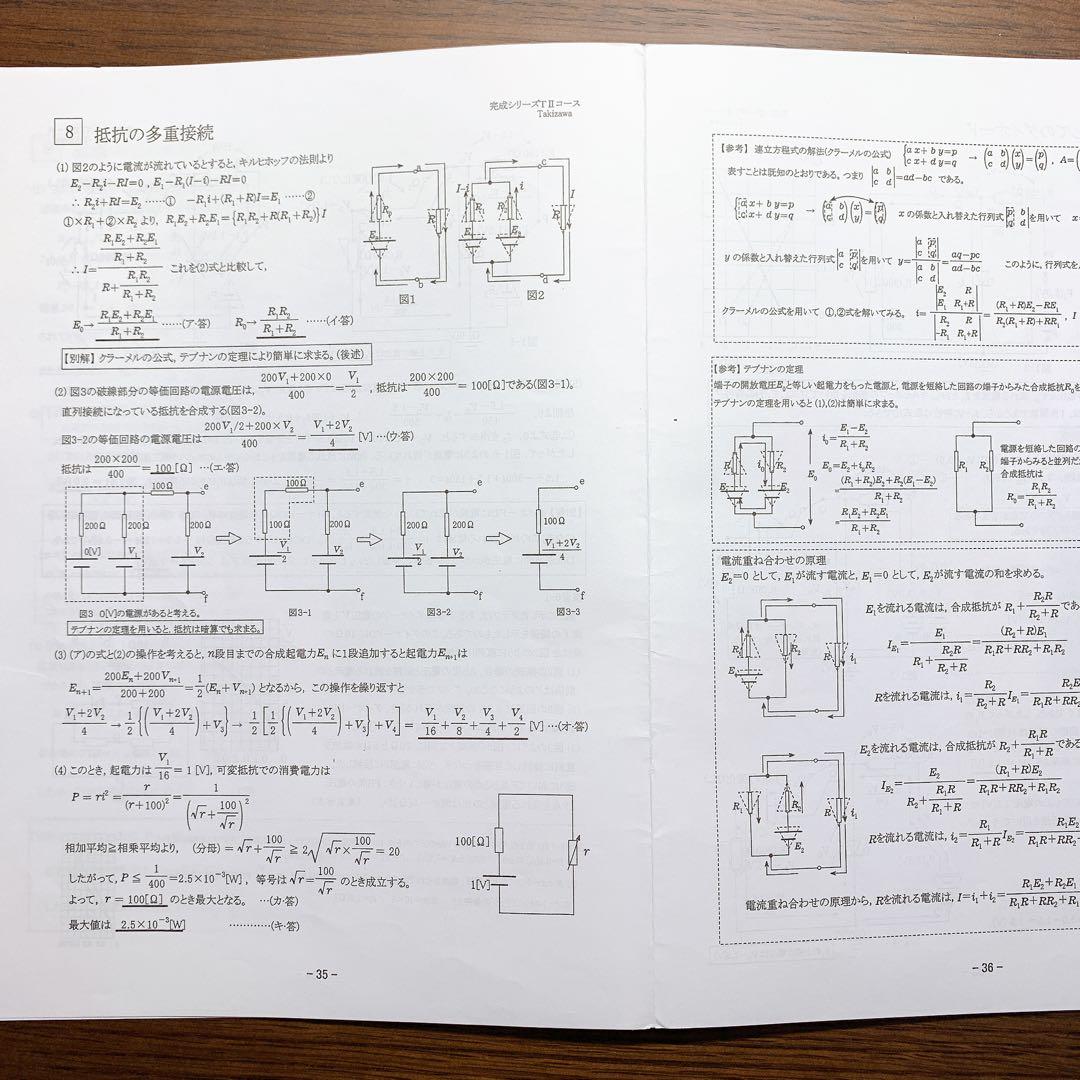 完成シリーズTⅡコース
Takizawa
8 抵抗の多重接続
(1) 図2のように電流が流れているとすると, キルヒホッフの法則より
E₂−R₂i−RI=0 , E₁−R₁(I−i)−RI=0
∴ R₂i+RI=E₂ ……① −R₁i+(R₁+R)I=E₁ ……②
①×R₁+②×R₂ より, R₁E₂+R₂E₁={R₁R₂+R(R₁+R₂)}I
∴ I= (R₁E₂+R₂E₁)/(R₁+R₂) / (R+ R₁R₂/(R₁+R₂)) これを(2)式と比較して,
E₀→ (R₁E₂+R₂E₁)/(R₁+R₂) ……(ア·答) R₀→ R₁R₂/(R₁+R₂) ……(イ·答)
a
R
R₀
E₀
b
図1
c
I−i
i
I
R₁
R₂
R
E₁
E₂
d
図2
【別解】クラーメルの公式, テブナンの定理により簡単に求まる。(後述)
(2) 図3の破線部分の等価回路の電源電圧は, (200V₁+200×0)/400 = V₁/2 , 抵抗は (200×200)/400 = 100[Ω]である(図3-1)。
直列接続になっている抵抗を合成する(図3-2)。
図3-2の等価回路の電源電圧は (200V₁/2+200×V₂)/400 = (V₁+2V₂)/4 [V] …(ウ·答)
抵抗は (200×200)/400 = 100[Ω] …(エ·答)
100Ω e
200Ω 200Ω 200Ω
0[V] V₁ V₂
f
図3 0[V]の電源があると考える。
100Ω e
100Ω 200Ω
V₁/2 V₂
f
図3-1
e
200Ω 200Ω
V₁/2 V₂
f
図3-2
e
100Ω
(V₁+2V₂)/4
f
図3-3
テブナンの定理を用いると, 抵抗は暗算でも求まる。
(3) (ア)の式と(2)の操作を考えると, n段目までの合成起電力Eₙ に1段追加すると起電力Eₙ₊₁は
Eₙ₊₁= (200Eₙ+200Vₙ₊₁)/(200+200) = 1/2 (Eₙ+Vₙ₊₁) となるから, この操作を繰り返すと
(V₁+2V₂)/4 → 1/2 {((V₁+2V₂)/4)+V₃} → 1/2 [1/2 {((V₁+2V₂)/4)+V₃}+V₄] = V₁/16 + V₂/8 + V₃/4 + V₄/2 [V] …(オ·答)
(4) このとき, 起電力は V₁/16 = 1 [V], 可変抵抗での消費電力は
P=ri²= r/(r+100)² = 1/(√r + 100/√r)²
相加平均≧相乗平均より, (分母)= √r + 100/√r ≧ 2√(√r × 100/√r) = 20
したがって, P ≦ 1/400 =2.5×10⁻³[W] , 等号は √r = 100/√r のとき成立する。
よって, r = 100[Ω] のとき最大となる。 …(カ·答)
最大値は 2.5×10⁻³[W] …………(キ·答)
100[Ω]
1[V]
r
−35−
【参考】 連立方程式の解法(クラーメルの公式) {ax+by=p cx+dy=q → (a b c d)(x y)=(p q) , A=
表すことは既知のとおりである。つまり |a b c d| =ad−bc である。
{ax+by=p cx+dy=q → (a b c d)(x y)=(p q) xの係数と入れ替えた行列式 |p b q d| を用いて
yの係数と入れ替えた行列式 |a p c q| を用いて y= |a p c q| / |a b c d| = (aq−pc)/(ad−bc) このように, 行列式を
クラーメルの公式を用いて ①,②式を解いてみる。 i= |E₂ R E₁ R₁+R| / |R₂ R −R₁ R₁+R| = ((R₁+R)E₂−RE₁)/(R₂(R₁+R)+RR₁) , I
【参考】テブナンの定理
端子の開放電圧E₀と等しい起電力をもった電源と, 電源を短絡した回路の端子からみた合成抵抗R₀を
テブナンの定理を用いると (1),(2)は簡単に求まる。
R₁
i₀
R₂
E₁
E₂
E₀
i₀= (E₁−E₂)/(R₁+R₂)
E₀=E₂+i₀R₂
= ((R₁+R₂)E₂+R₂(E₁−E₂))/(R₁+R₂)
= (R₁E₂+R₂E₁)/(R₁+R₂)
R₁ R₂
電源を短絡した回路の
端子からみると並列だ
合成抵抗は
R₀= R₁R₂/(R₁+R₂)
電流重ね合わせの原理
E₂=0 として, E₁が流す電流と, E₁=0 として, E₂が流す電流の和を求める。
R₁
R₂
R
i₁
E₁
E₁を流れる電流は, 合成抵抗が R₁+ R₂R/(R₂+R) であ
I_E₁= E₁/(R₁+ R₂R/(R₂+R)) = (R₂+R)E₁/(R₁R+RR₂+R₁R₂)
Rを流れる電流は, i₁= R₂/(R₂+R) I_E₁= R₂E₁/(R₁R+RR₂
R₁
R₂
R
i₁
E₂
E₂を流れる電流は, 合成抵抗が R₂+ R₁R/(R₁+R) である
I_E₂= E₂/(R₂+ R₁R/(R₁+R)) = (R₁+R)E₂/(R₁R+RR₂+R₁R₂)
Rを流れる電流は, i₂= R₁/(R₁+R) I_E₂= R₁E₂/(R₁R+RR₂
電流重ね合わせの原理から, Rを流れる電流は, I=i₁+i₂= (R₁E₂+R₂E₁)/(R₁R+RR₂+R₁
−36−